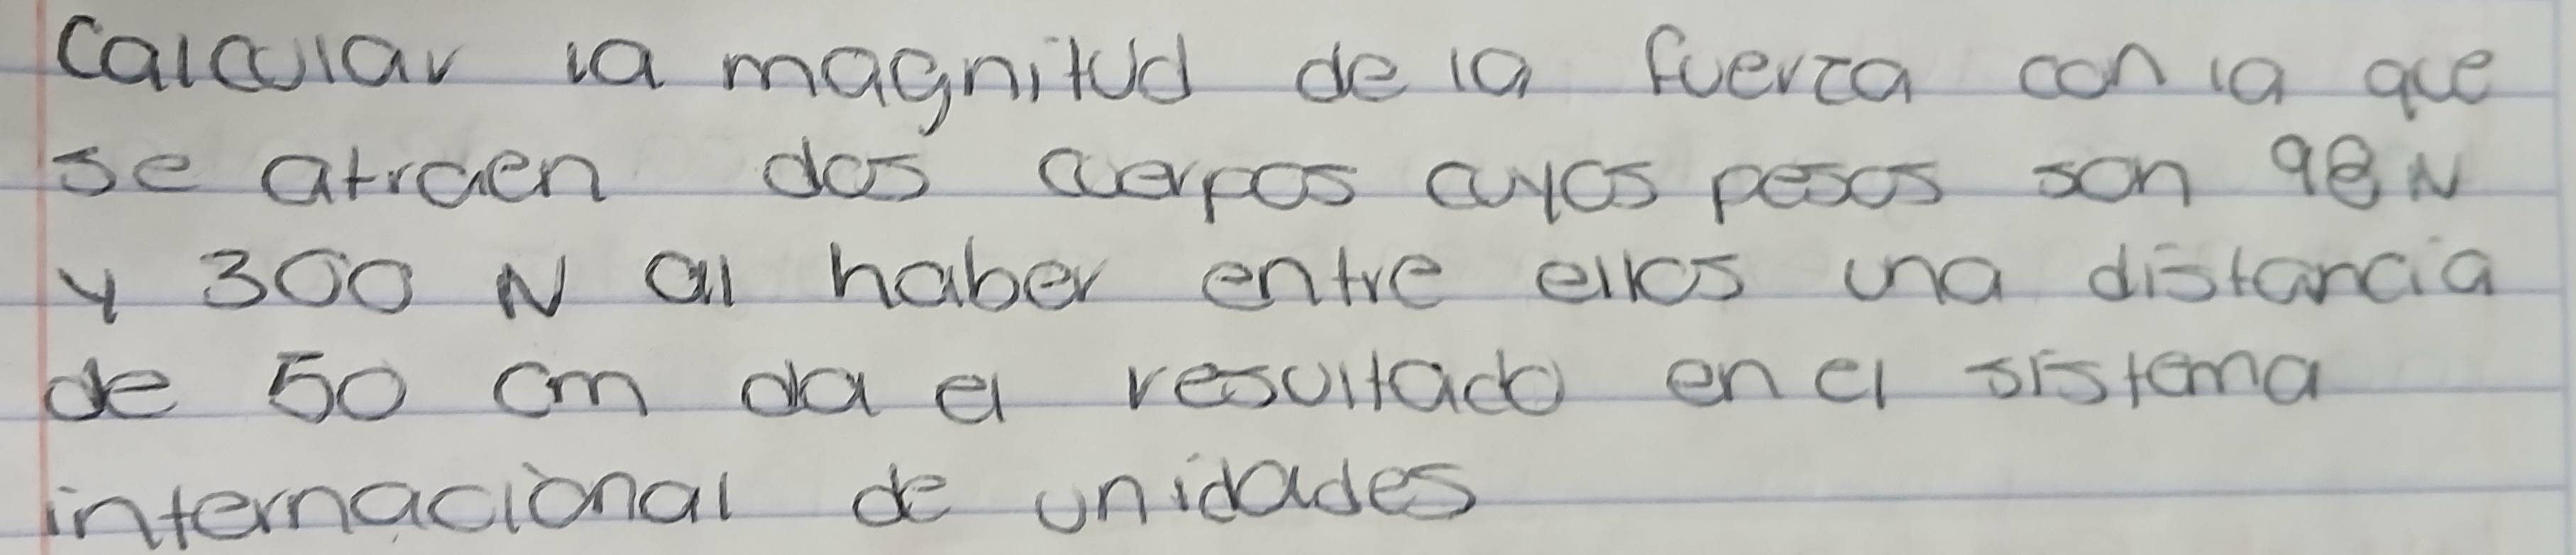 Calcular la magnitud de la fuerza con la que
se atraen dos cuerpos cuyos pesos son 98 N
y 300 N al haber entre ellos una distancia
de 50 cm da el resultado en el sistema
internacional de unidades